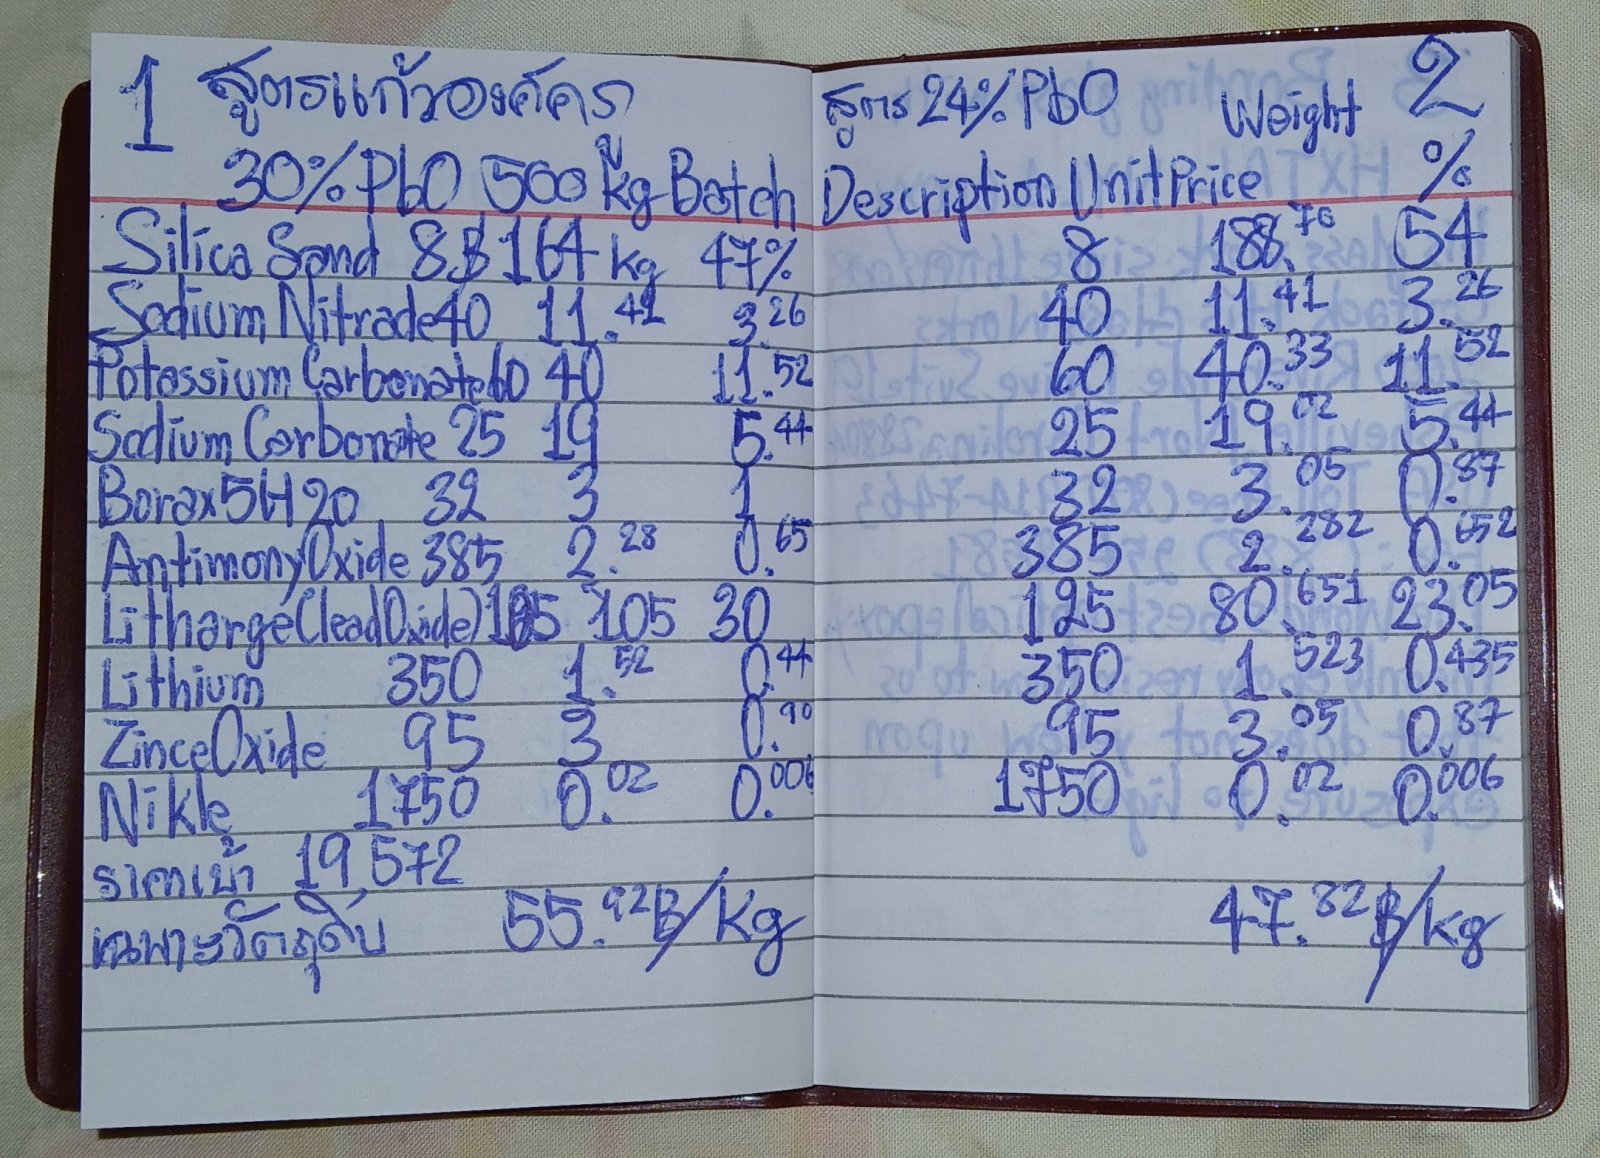 1 สูตรแก้วองค์ครู
30% PbO 500 Kg-Batch
Silica Sand 8฿ 164 kg 47%
Sodium Nitrade 40 11.41 3.26
Potassium Carbonate 60 40 11.52
Sodium Carbonate 25 19 5.44
Borax5H20 32 3 1
Antimony Oxide 385 2.28 0.65
Litharge(leadOxide) 105 30
Lithium 350 1.52 0.44
ZinceOxide 95 3 0.90
Nikle 1750 0.02 0.006
ราคาเบ้า 19572
เฉพาะวัตถุดิบ 55.92฿/Kg
สูตร 24% PbO Weight 2
Description Unit Price %
8 188.70 54
40 11.41 3.26
60 40.33 11.52
25 19.02 5.44
32 3.05 0.87
385 2.282 0.652
125 80.651 23.05
350 1.523 0.435
95 3.05 0.87
1750 0.02 0.006
47.82฿/kg